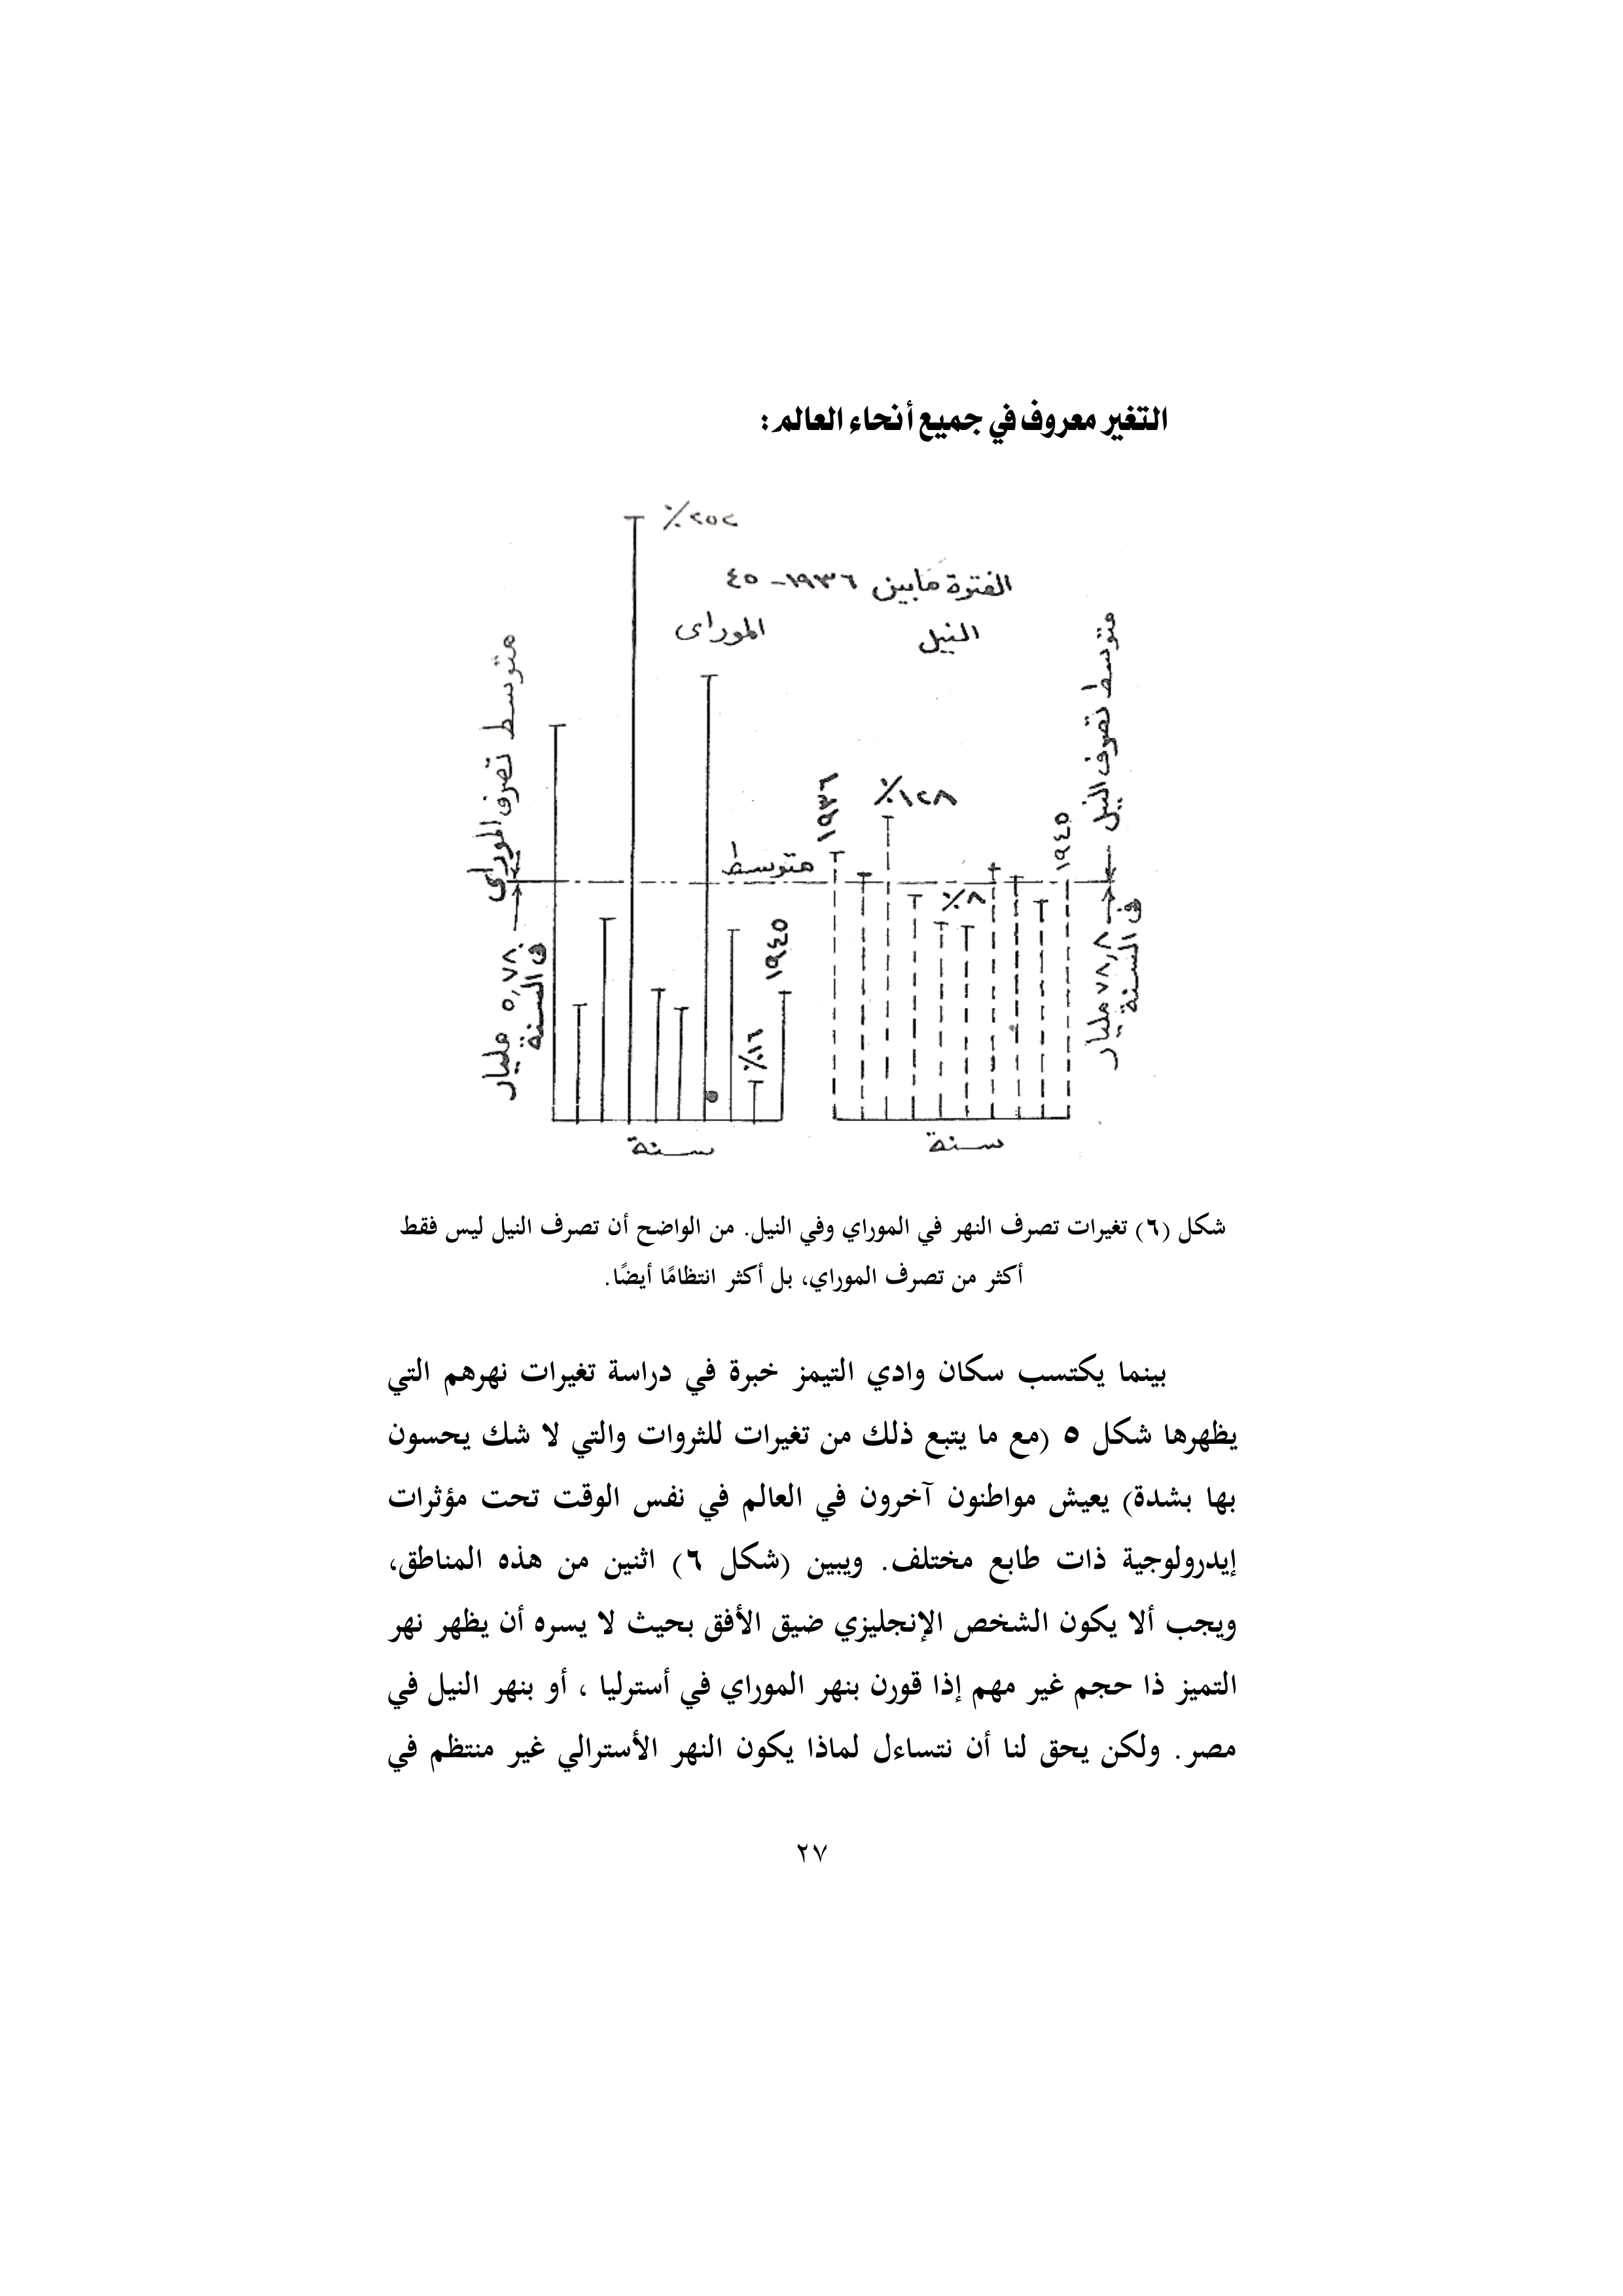 التغير معروف في جميع أنحاء العالم:
٢٥٢٪
الفترة مابين ١٩٣٦-٤٥
الموراى
النيل
متوسط تصرف الموراى
٥,٧٨ مليار
فى السنة
متوسط
١٩٣٦
١٢٨٪
٨٪
١٩٤٥
١٦٪
١٩٤٥
متوسط تصرف النيل
٧٨,٨ مليار
فى السنة
سنة
سنة
شكل (٦) تغيرات تصرف النهر في الموراي وفي النيل. من الواضح أن تصرف النيل ليس فقط
أكثر من تصرف الموراي، بل أكثر انتظامًا أيضًا.
بينما يكتسب سكان وادي التيمز خبرة في دراسة تغيرات نهرهم التي
يظهرها شكل ٥ (مع ما يتبع ذلك من تغيرات للثروات والتي لا شك يحسون
بها بشدة) يعيش مواطنون آخرون في العالم في نفس الوقت تحت مؤثرات
إيدرولوجية ذات طابع مختلف. ويبين (شكل ٦) اثنين من هذه المناطق،
ويجب ألا يكون الشخص الإنجليزي ضيق الأفق بحيث لا يسره أن يظهر نهر
التميز ذا حجم غير مهم إذا قورن بنهر الموراي في أسترليا ، أو بنهر النيل في
مصر. ولكن يحق لنا أن نتساءل لماذا يكون النهر الأسترالي غير منتظم في
٢٧